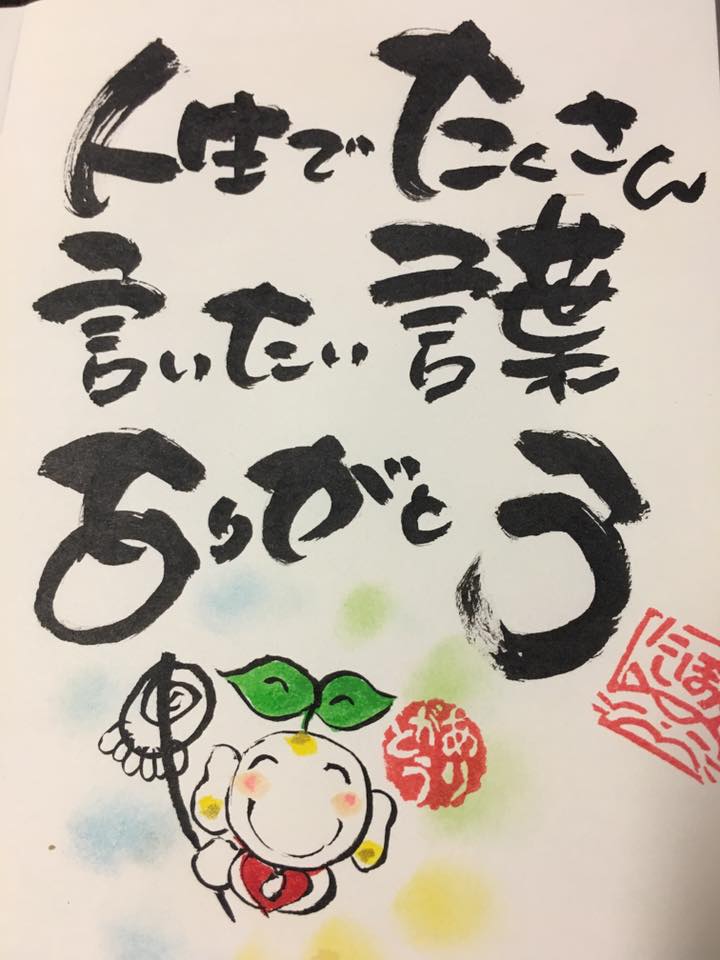 人生でたくさん
言いたい言葉
ありがとう
ありがとう